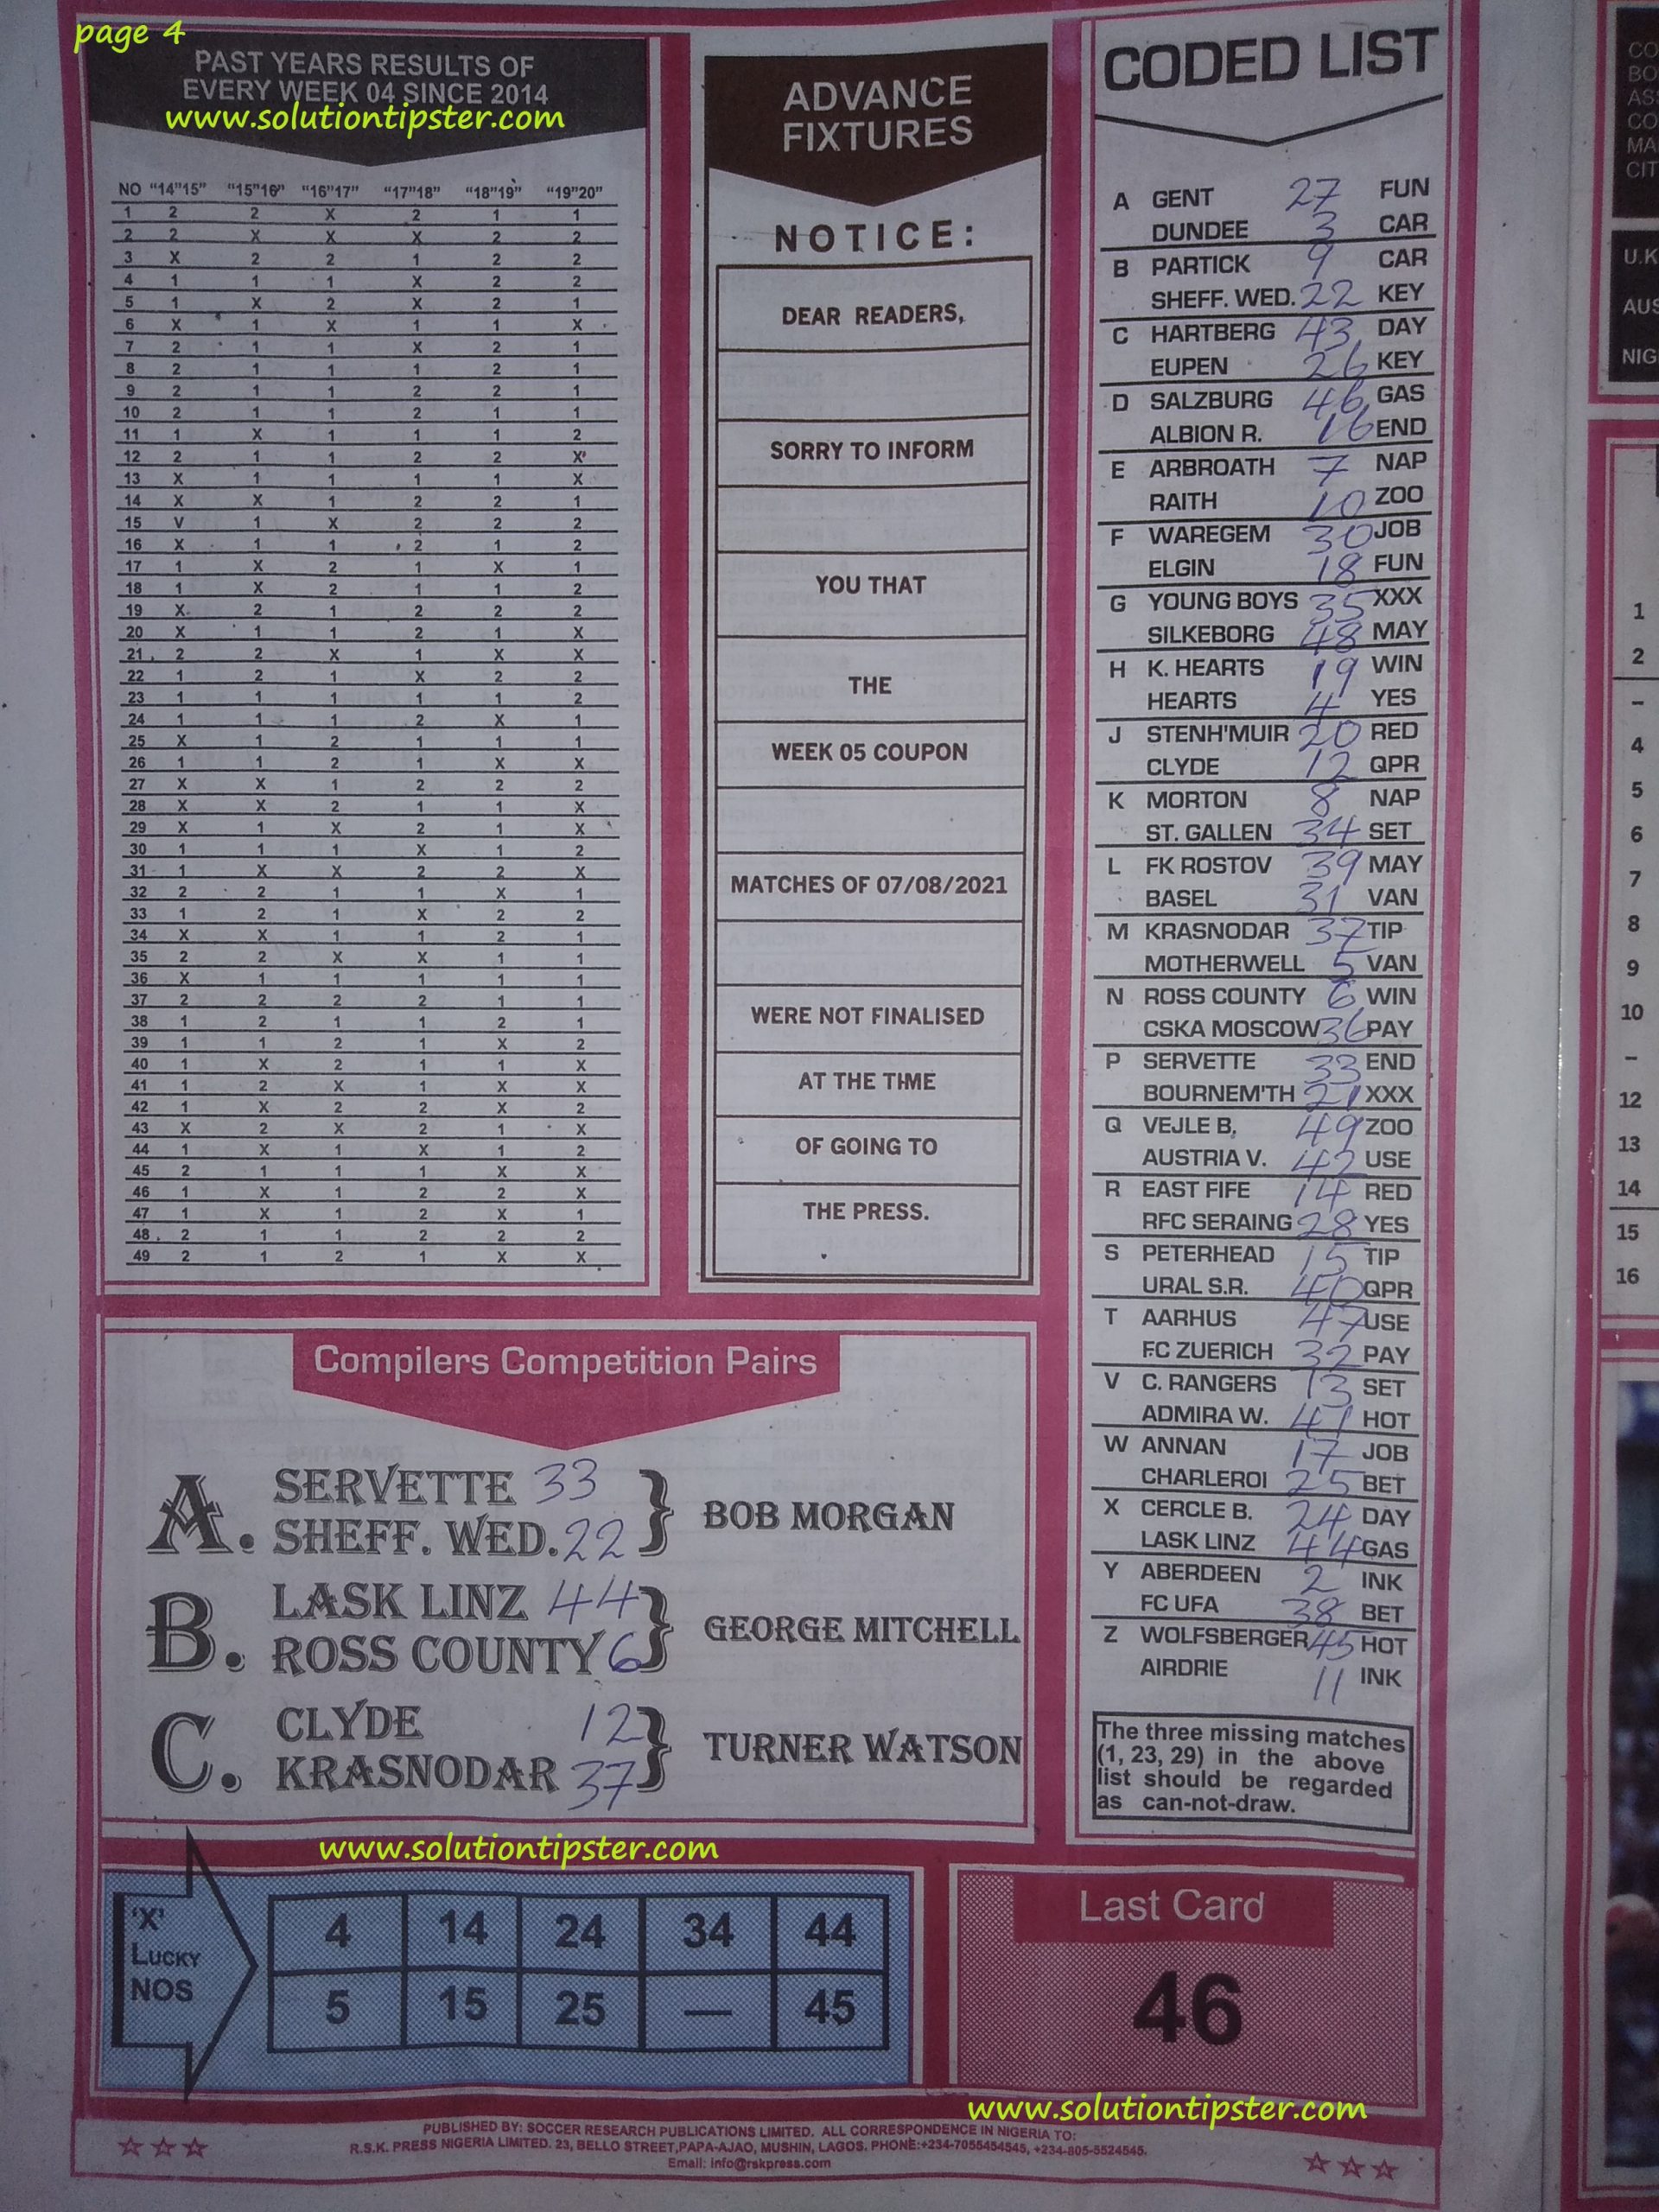 page 4
PAST YEARS RESULTS OF
EVERY WEEK 04 SINCE 2014
www.solutiontipster.com
NO "14"15" "15"16" "16"17" "17"18" "18"19" "19"20"
1 2 2 X 2 1 1
2 2 X X X 2 2
3 X 2 2 1 2 2
4 1 1 1 X 2 2
5 1 X 2 X 2 1
6 X 1 X 1 1 X
7 2 1 1 X 2 1
8 2 1 1 1 2 1
9 2 1 1 2 2 1
10 2 1 1 2 1 1
11 1 X 1 1 1 2
12 2 1 1 2 2 X
13 X 1 1 1 1 X
14 X X 1 2 2 1
15 V 1 X 2 2 2
16 X 1 1 2 1 2
17 1 X 2 1 X 1
18 1 X 2 1 1 2
19 X 2 1 2 2 2
20 X 1 1 2 1 X
21 2 2 X 1 X X
22 1 2 1 X 2 2
23 1 1 1 1 1 2
24 1 1 1 2 X 1
25 X 1 2 1 1 1
26 1 1 2 1 X X
27 X X 1 2 2 2
28 X X 2 1 1 X
29 X 1 X 2 1 X
30 1 1 1 X 1 2
31 1 X X 2 2 X
32 2 2 1 1 X 1
33 1 2 1 X 2 2
34 X X 1 1 2 1
35 2 2 X X 1 1
36 X 1 1 1 1 1
37 2 2 2 2 1 1
38 1 2 1 1 2 1
39 1 1 2 1 X 2
40 1 X 2 1 1 X
41 1 2 X 1 X X
42 1 X 2 2 X 2
43 X 2 X 2 1 X
44 1 X 1 X 1 2
45 2 1 1 1 X X
46 1 X 1 2 2 X
47 1 X 1 2 X 1
48 2 1 1 2 2 2
49 2 1 2 1 X X
ADVANCE
FIXTURES
NOTICE:
DEAR READERS,
SORRY TO INFORM
YOU THAT
THE
WEEK 05 COUPON
MATCHES OF 07/08/2021
WERE NOT FINALISED
AT THE TIME
OF GOING TO
THE PRESS.
CODED LIST
A GENT 27 FUN
DUNDEE 3 CAR
B PARTICK 9 CAR
SHEFF. WED. 22 KEY
C HARTBERG 43 DAY
EUPEN 26 KEY
D SALZBURG 46 GAS
ALBION R. 16 END
E ARBROATH 7 NAP
RAITH 10 ZOO
F WAREGEM 30 JOB
ELGIN 18 FUN
G YOUNG BOYS 35 XXX
SILKEBORG 48 MAY
H K. HEARTS 19 WIN
HEARTS 4 YES
J STENH'MUIR 20 RED
CLYDE 12 QPR
K MORTON 8 NAP
ST. GALLEN 34 SET
L FK ROSTOV 39 MAY
BASEL 31 VAN
M KRASNODAR 37 TIP
MOTHERWELL 5 VAN
N ROSS COUNTY 6 WIN
CSKA MOSCOW 36 PAY
P SERVETTE 33 END
BOURNEM'TH 21 XXX
Q VEJLE B, 49 ZOO
AUSTRIA V. 42 USE
R EAST FIFE 14 RED
RFC SERAING 28 YES
S PETERHEAD 15 TIP
URAL S.R. 40 QPR
T AARHUS 47 USE
FC ZUERICH 32 PAY
V C. RANGERS 13 SET
ADMIRA W. 41 HOT
W ANNAN 17 JOB
CHARLEROI 25 BET
X CERCLE B. 24 DAY
LASK LINZ 44 GAS
Y ABERDEEN 2 INK
FC UFA 38 BET
Z WOLFSBERGER 45 HOT
AIRDRIE 11 INK
The three missing matches
(1, 23, 29) in the above
list should be regarded
as can-not-draw.
Compilers Competition Pairs
A. SERVETTE 33
SHEFF. WED. 22
BOB MORGAN
B. LASK LINZ 44
ROSS COUNTY 6
GEORGE MITCHELL
C. CLYDE 12
KRASNODAR 37
TURNER WATSON
www.solutiontipster.com
'X'
LUCKY
NOS
4 14 24 34 44
5 15 25 — 45
Last Card
46
www.solutiontipster.com
PUBLISHED BY: SOCCER RESEARCH PUBLICATIONS LIMITED. ALL CORRESPONDENCE IN NIGERIA TO:
R.S.K. PRESS NIGERIA LIMITED. 23, BELLO STREET,PAPA-AJAO, MUSHIN, LAGOS. PHONE:+234-7055454545, +234-805-5524545.
Email: info@rskpress.com
CO
BO
AS
CO
MA
CIT
U.K
AUS
NIG
1
2
–
4
5
6
7
8
9
10
–
12
13
14
15
16